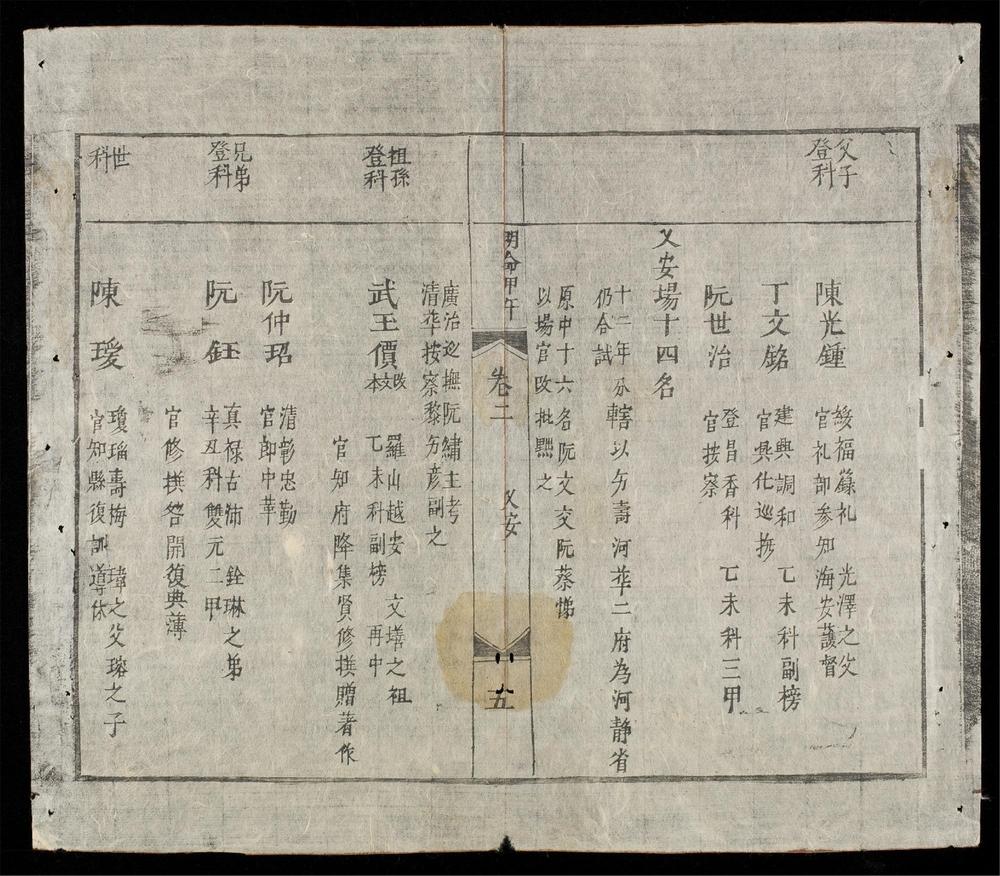 父子
登科
陳光鍾
綏福籙礼　光澤之父
官礼部参知海安護督
丁文銘
建興調和　乙未科副榜
官興化巡撫
阮世治
登昌香科　乙未科三甲
官按察
乂安場十四名
十二年分轄以乂壽河華二府為河静省
仍合試
原中十六名阮文交阮蔡悌
以場官改批黜之
明命甲午
卷二
乂安
五
廣治巡撫阮繡主考
清華按察黎乂彦副之
祖孫
登科
武王價
改文本
羅山越安　文墡之祖
乙未科副榜　再中
官知府降集賢修撰贈著作
阮仲玿
清彰忠勤
官郎中革
兄弟
登科
阮鈺
真禄古沛　銓琳之弟
辛丑科雙元二甲
官修撰咎開復典薄
世
科
陳瑗
瓊瑠壽梅　瑋之父瑢之子
官知縣復訓導休